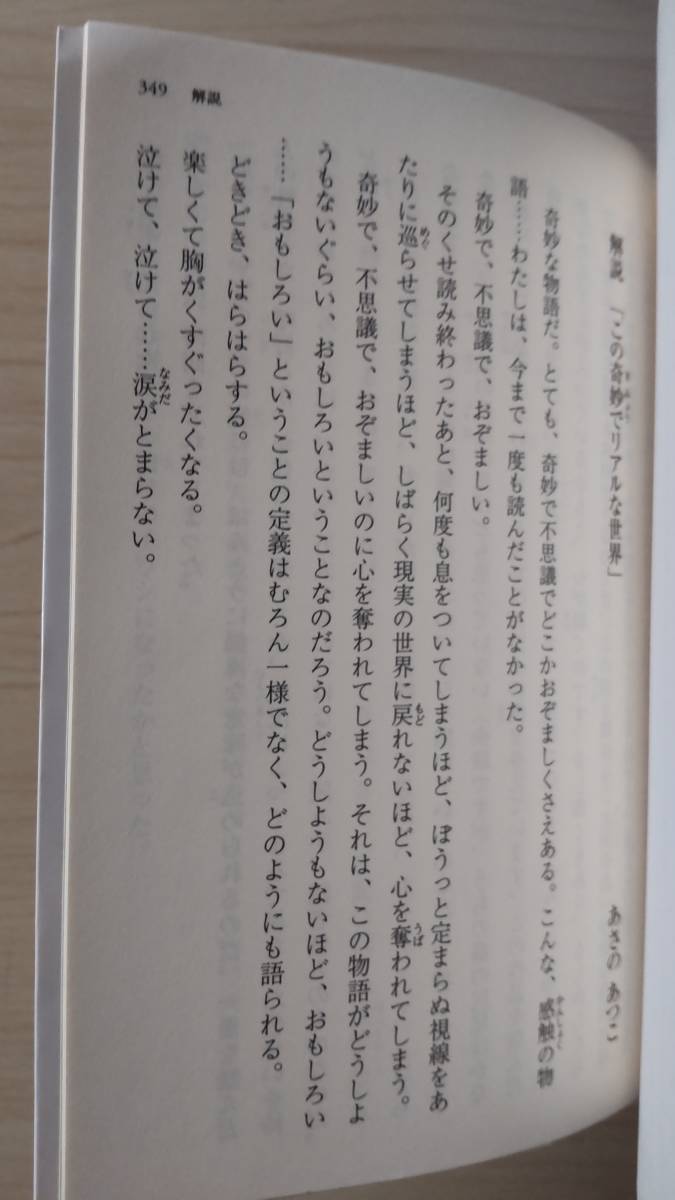 349 解説
解説 「この奇妙でリアルな世界」
あさの あつこ
奇妙な物語だ。とても、奇妙で不思議でどこかおぞましくさえある。こんな、感触の物
語……わたしは、今まで一度も読んだことがなかった。
奇妙で、不思議で、おぞましい。
そのくせ読み終わったあと、何度も息をついてしまうほど、ぼうっと定まらぬ視線をあ
たりに巡らせてしまうほど、しばらく現実の世界に戻れないほど、心を奪われてしまう。
奇妙で、不思議で、おぞましいのに心を奪われてしまう。それは、この物語がどうしよ
うもないぐらい、おもしろいということなのだろう。どうしようもないほど、おもしろい
……「おもしろい」ということの定義はむろん一様でなく、どのようにも語られる。
どきどき、はらはらする。
楽しくて胸がくすぐったくなる。
泣けて、泣けて……涙がとまらない。